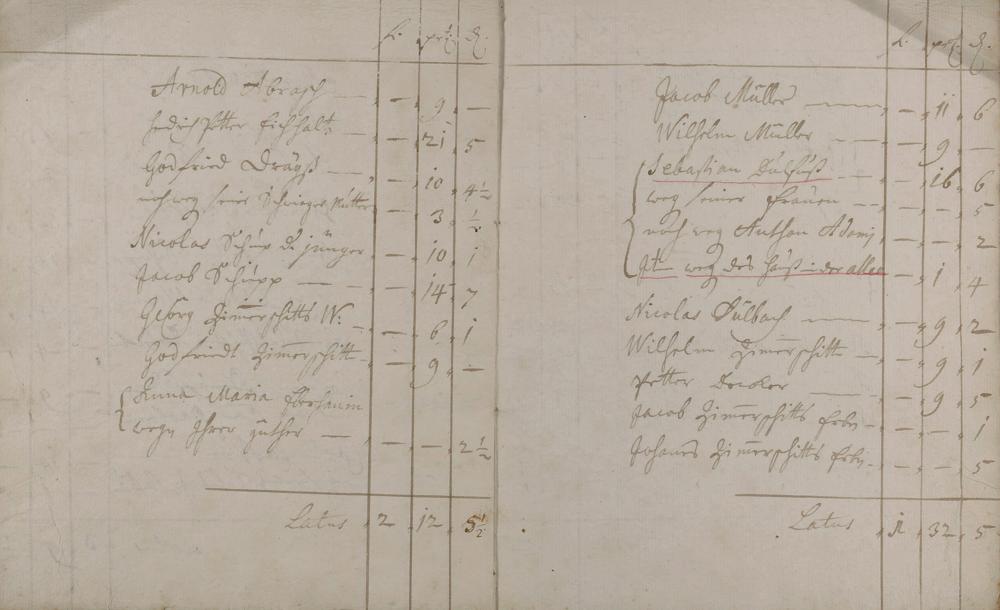 Arnold Abrasch — — 9 —
Petter Eichhalt — — 21 5
Godfried — — 10 4½
noch weg seiner Schwieger Mutter — 3 ½
Nicolas Schüp d. jünger — 10 1
Jacob Schupp — — 14 7
Georg Zimerschitts W: — — 6 1
Godfriedt Zimerschitt — — 9 —
Anna Maria
wegen Ihrer güther — — — 2½
Latus 2 12 5½
Jacob Müller — — 11 6
Wilhelm Müller — — 9 —
Sebastian — — 16 6
weg seiner frauen — — — 5
noch weg Anthon Adams — — 2
weg des hauß in der allee — 1 4
Nicolas Dülbach — — 9 2
Wilhelm Zimerschitt — — 9 1
Petter Decker — — 9 5
Jacob Zimerschitts Erben — — — 1
Johanes Zimerschitts Erben — — — 5
Latus 1 32 5